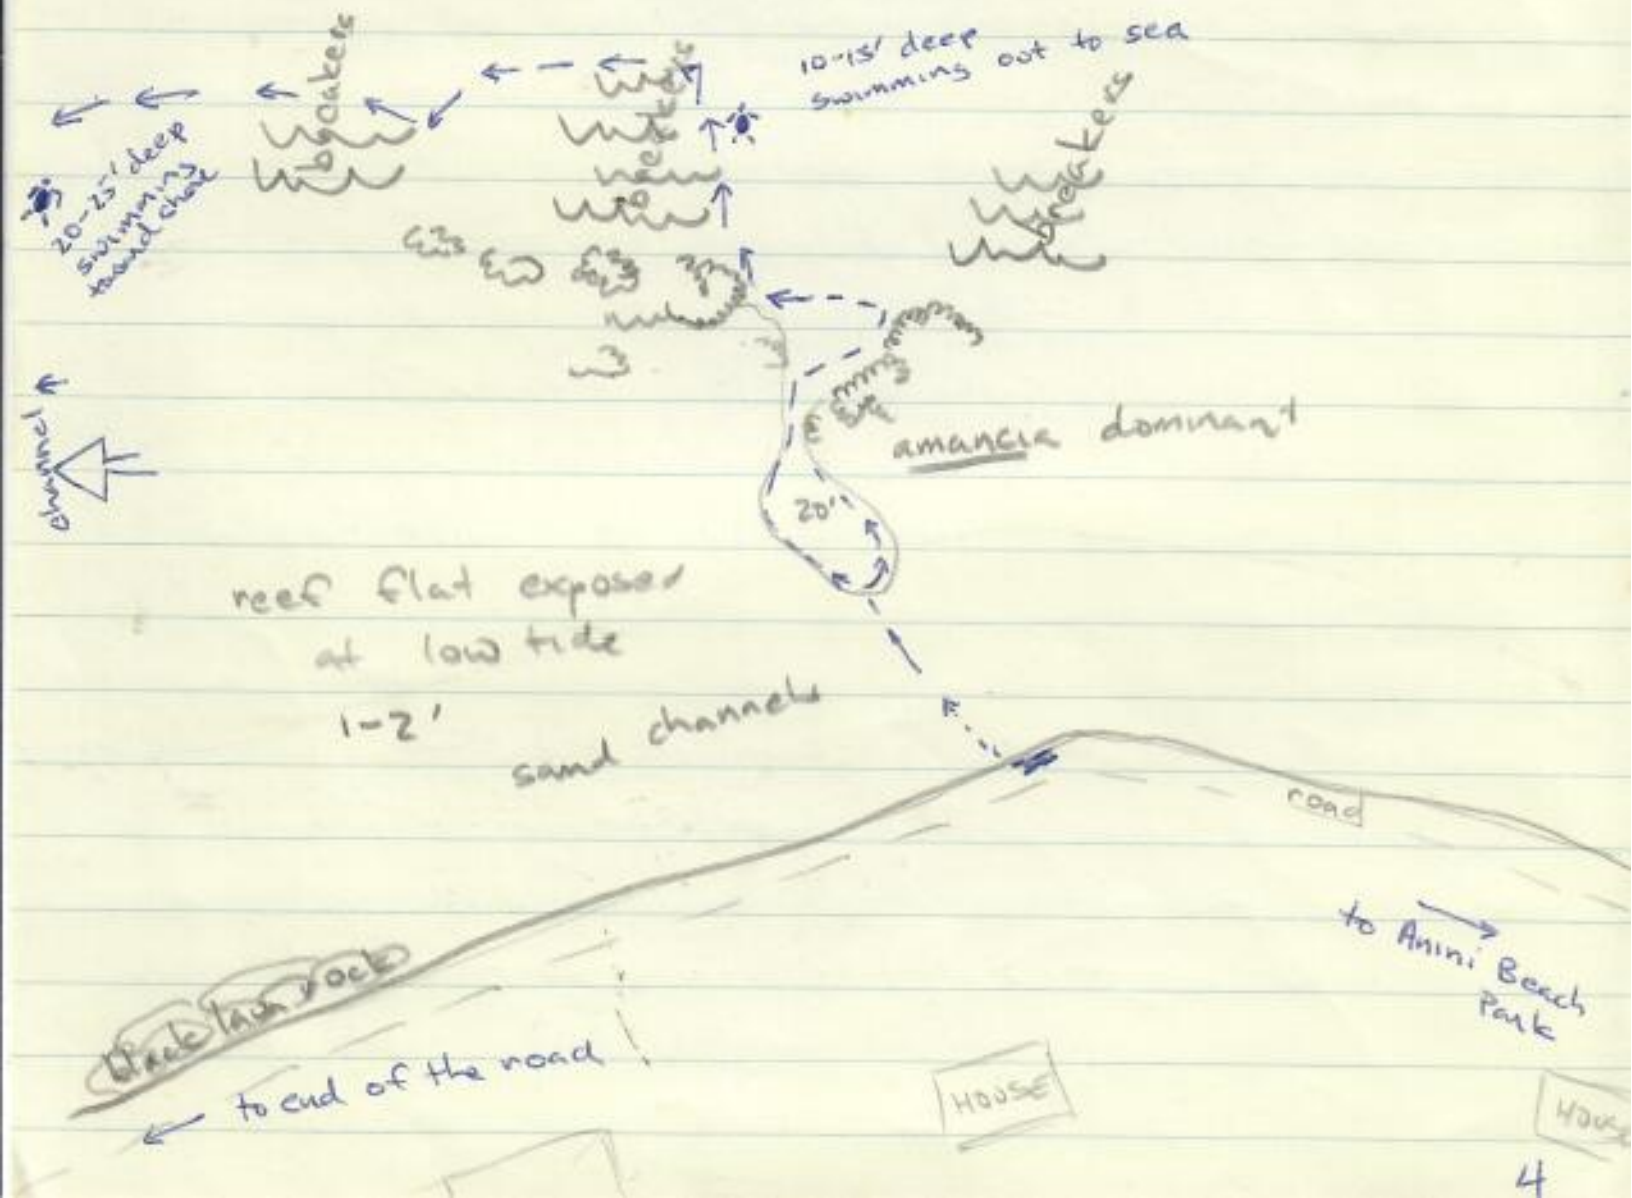 breakers
breakers
breakers
10-15' deep
swimming out to sea
20-25' deep
swimming
toward shore
channel
amancia dominant
20'
reef flat exposed
at low tide
1-2'
sand channels
road
to Anini Beach
Park
black lava rock
to end of the road
HOUSE
HOUSE
4